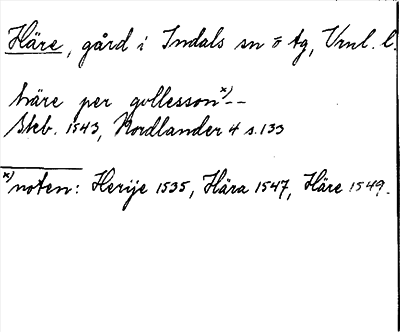 Häre, gård i Indals sn o tg, Vrnl. l.
häre per gollesson x) --
Skb. 1543, Nordlander 4 s. 133
x) noten: Herije 1535, Hära 1547, Häre 1549.